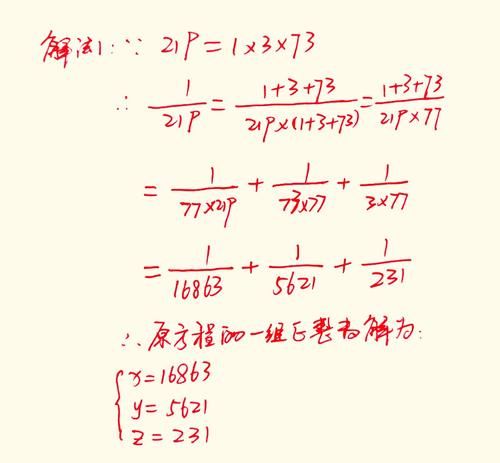 解法1：∵ 219 = 1×3×73
∴ 1/219 = (1+3+73)/(219×(1+3+73)) = (1+3+73)/(219×77)
= 1/(77×219) + 1/(73×77) + 1/(3×77)
= 1/16863 + 1/5621 + 1/231
∴ 原方程的一组正整数解为：
{ x=16863
y=5621
z=231